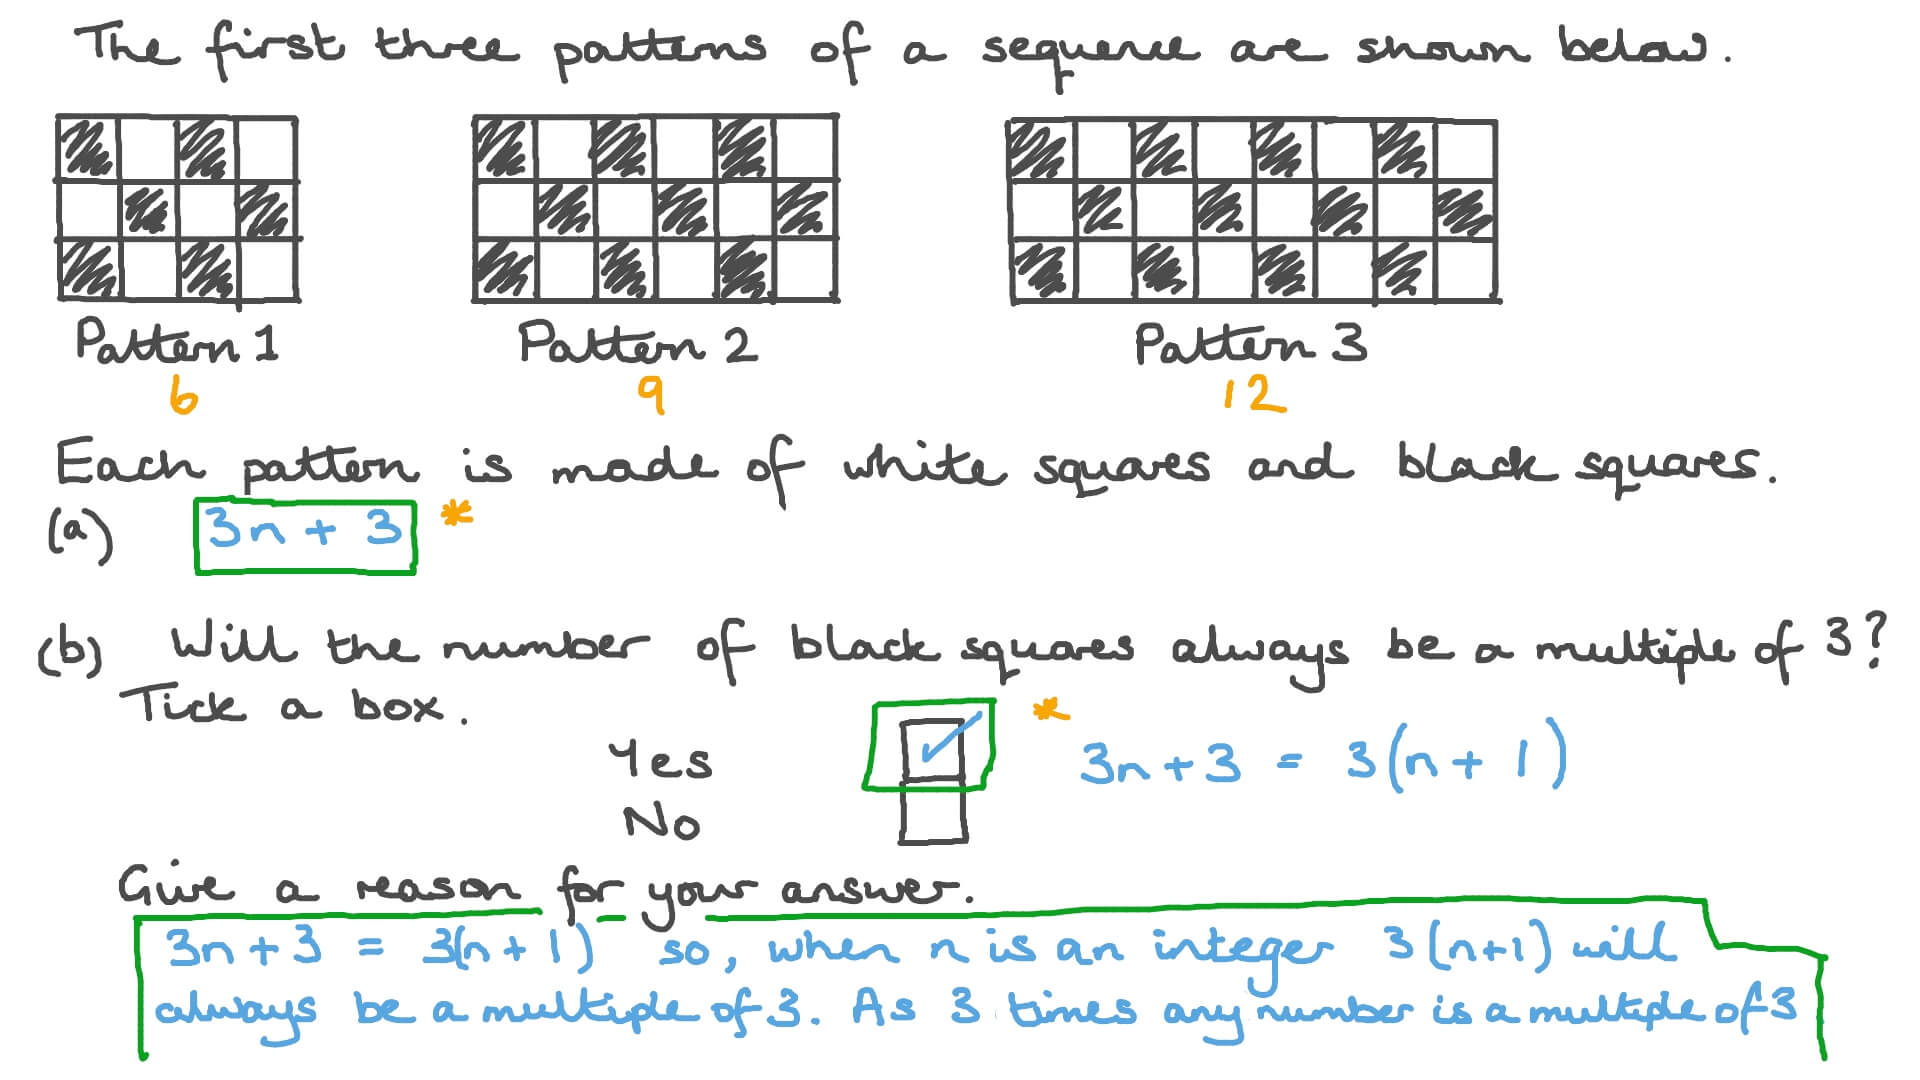 The first three patterns of a sequence are shown below.
Pattern 1 Pattern 2 Pattern 3
6 9 12
Each pattern is made of white squares and black squares.
(a) 3n + 3 *
(b) Will the number of black squares always be a multiple of 3?
Tick a box.
Yes ✓ * 3n + 3 = 3(n + 1)
No
Give a reason for your answer.
3n + 3 = 3(n + 1) so, when n is an integer 3(n+1) will
always be a multiple of 3. As 3 times any number is a multiple of 3